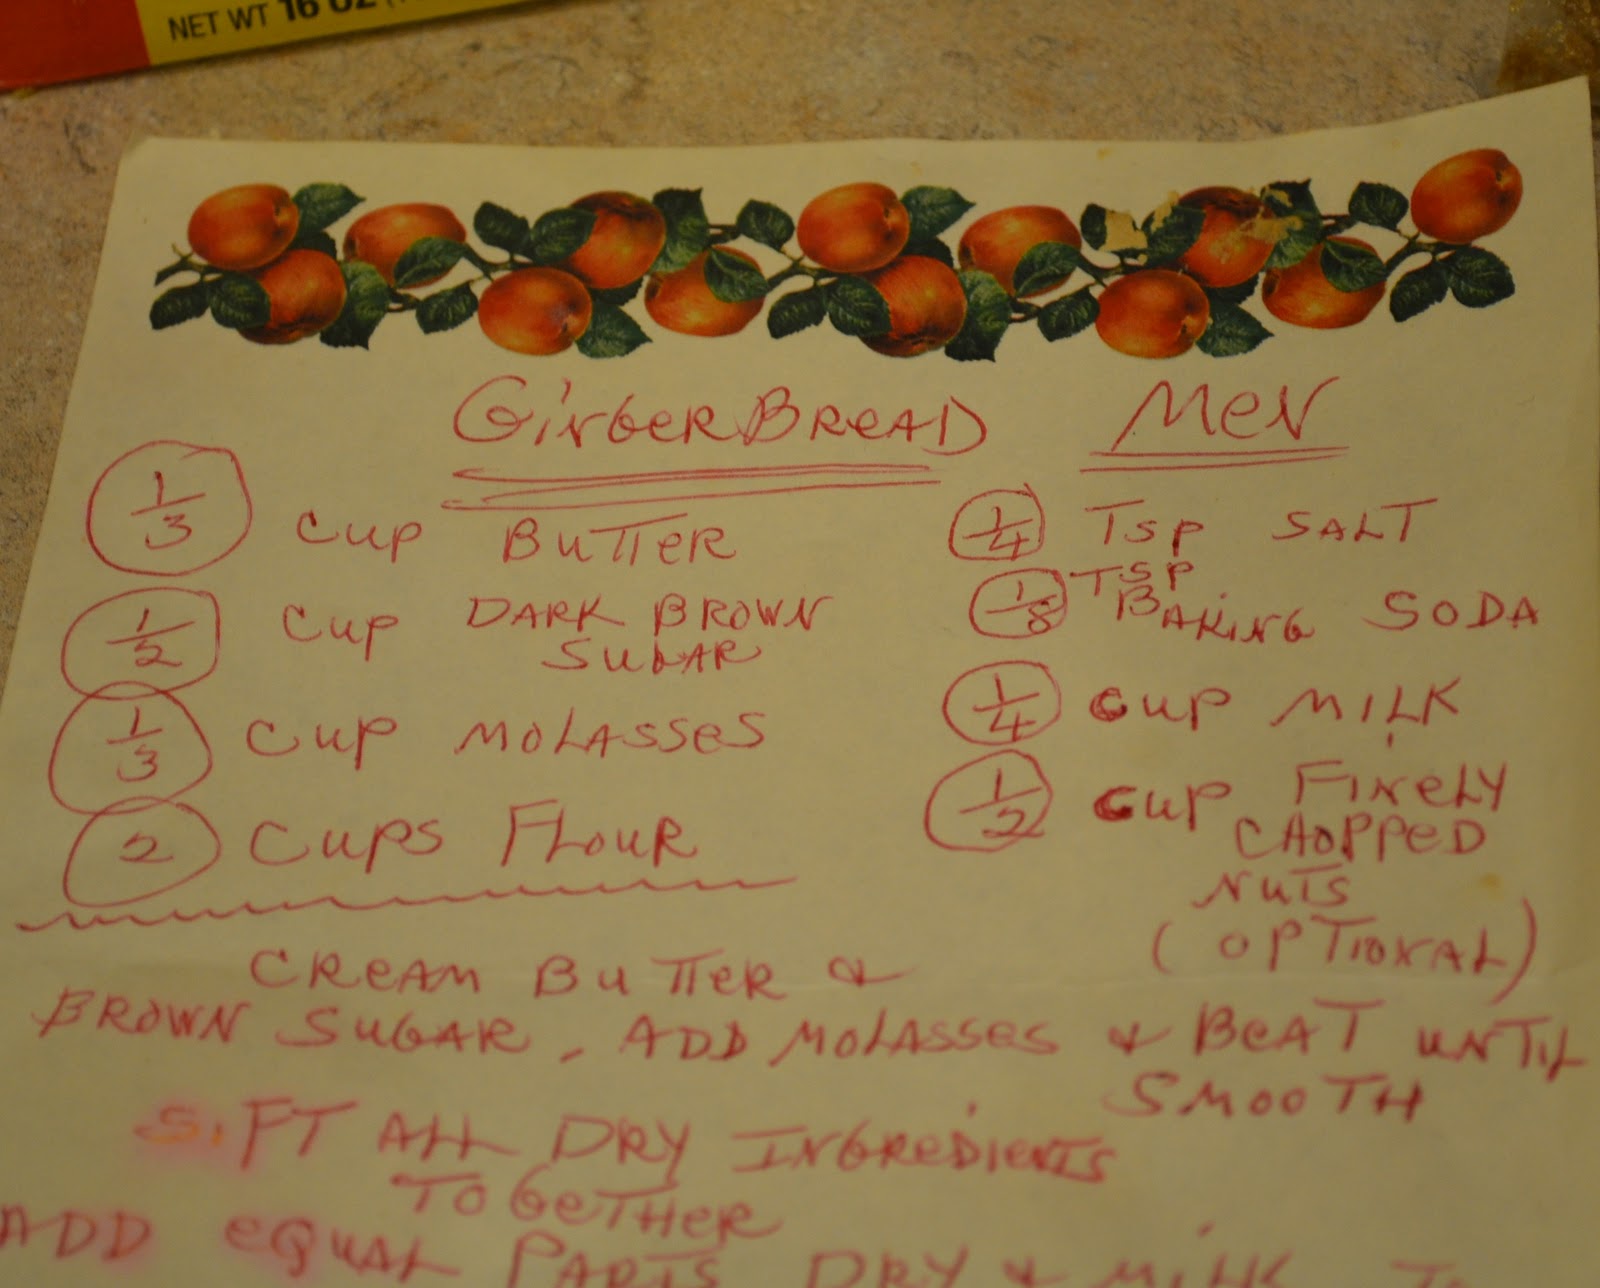 NET WT 16 OZ
GINGERBREAD MEN
1/3 CUP BUTTER
1/2 CUP DARK BROWN
SUGAR
1/3 CUP MOLASSES
2 CUPS FLOUR
1/4 TSP SALT
1/8 TSP.
BAKING SODA
1/4 CUP MILK
1/2 CUP FINELY
CHOPPED
NUTS
(OPTIONAL)
CREAM BUTTER &
BROWN SUGAR. ADD MOLASSES & BEAT UNTIL
SMOOTH
SIFT ALL DRY INGREDIENTS
TOGETHER
ADD EQUAL PARTS DRY & MILK